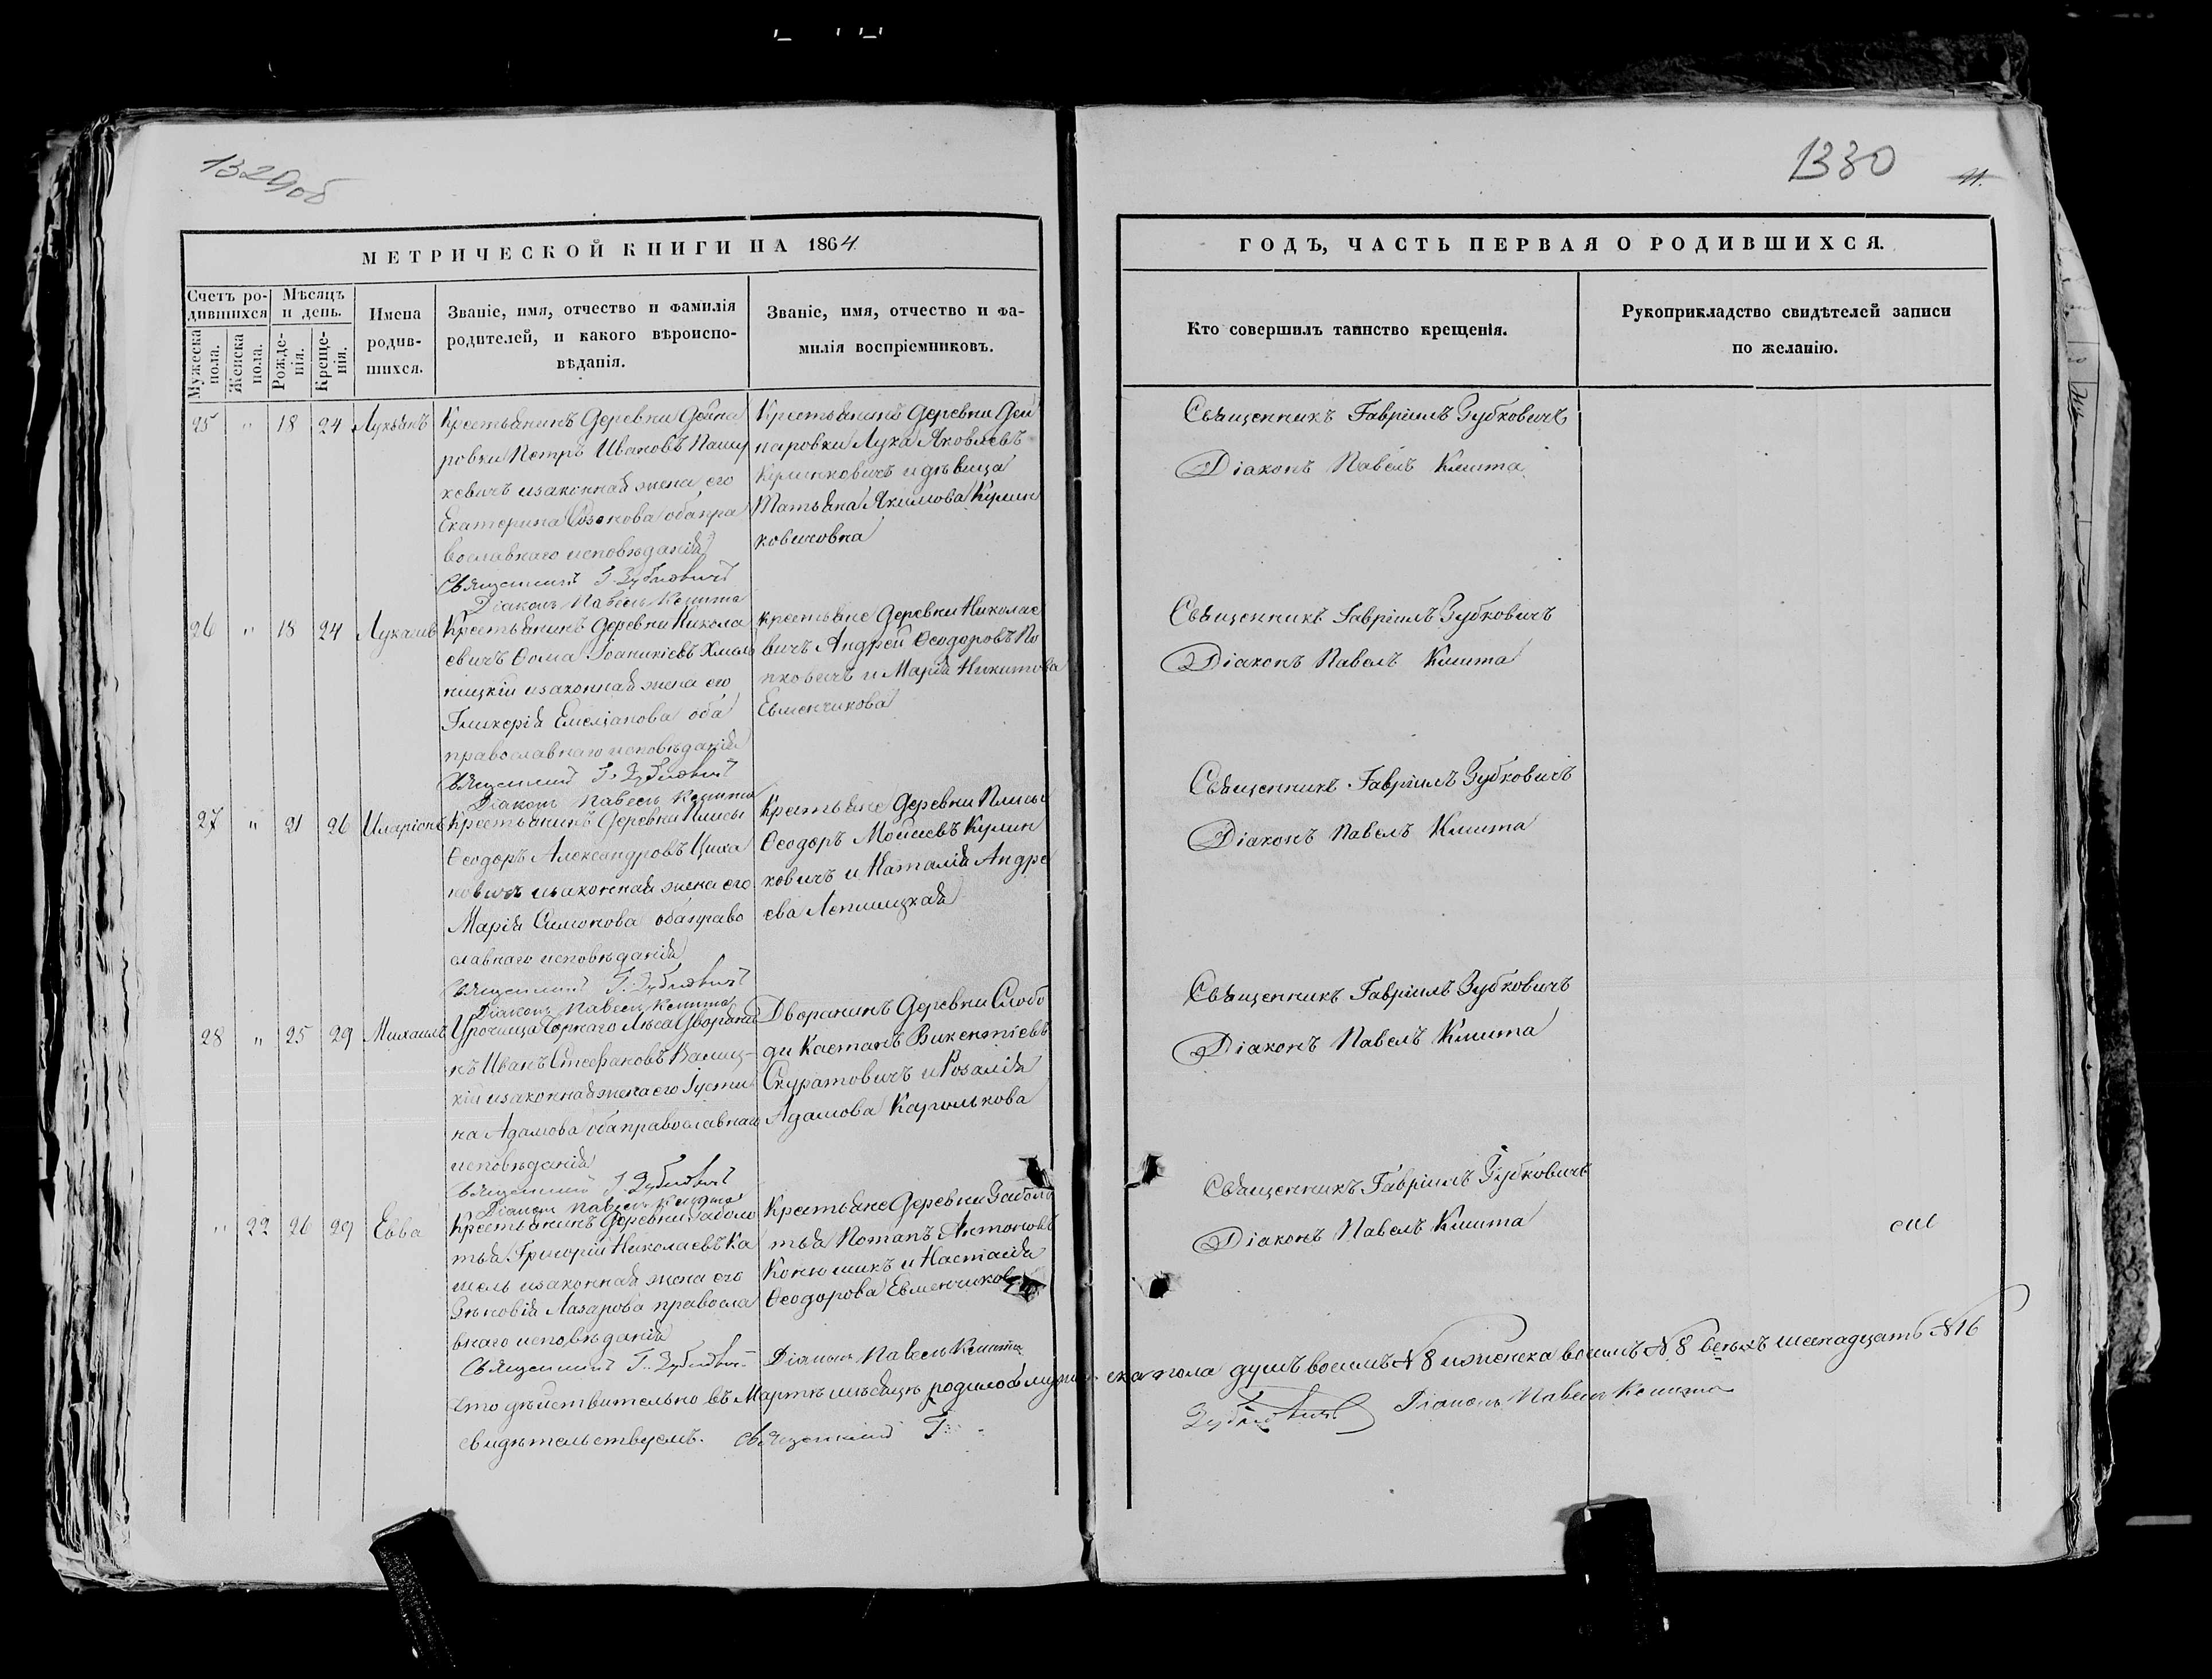 1329об
1330
11.
МЕТРИЧЕСКОЙ КНИГИ НА 1864
ГОДЪ, ЧАСТЬ ПЕРВАЯ О РОДИВШИХСЯ.
Счетъ ро-
дившихся
Мужеска
пола.
Женска
пола.
Мѣсяцъ
и день.
Рожде-
нія.
Креще-
нія.
Имена
родив-
шихся.
Званіе, имя, отчество и фамилія
родителей, и какого вѣроиспо-
вѣданія.
Званіе, имя, отчество и фа-
милія воспріемниковъ.
Кто совершилъ таинство крещенія.
Рукоприкладство свидѣтелей записи
по желанію.
25 " 18 24 Лукіянъ
Крестьянинъ деревни Дейна
ровки Петръ Ивановъ Пашу
кевичъ изаконная жена его
Екатерина обапра
вославнаго исповѣданія
Священникъ Г. Зубковичъ
Діаконъ Павелъ Кмита
Крестьянинъ деревни Дей
наровки Лука Яковлевъ
Кулинковичъ и дѣвица
Татьяна Якимова Кулин
ковичовна
Священникъ Гавріилъ Зубковичъ
Діаконъ Павелъ Кмита
26 " 18 24
Крестьянинъ деревни Никола
евичъ Ѳома Іоаникіевъ Хмель
ницкій изаконная жена его
Гликерія Емеліанова оба
православнаго исповѣданія
Священникъ Г. Зубковичъ
Діаконъ Павелъ Кмита
Крестьяне деревни Николае
вичъ Андрей Ѳеодоровъ По
пковичъ и Марія Никитова
Евменчикова
Священникъ Гавріилъ Зубковичъ
Діаконъ Павелъ Кмита
27 " 21 26 Иларіонъ
Крестьянинъ деревни Плисы
Ѳеодоръ Александровъ Циха
новичъ изаконная жена его
Марія Симонова обаправо
славнаго исповѣданія
Священникъ Г. Зубковичъ
Діаконъ Павелъ Кмита
Крестьяне деревни Плисы
Ѳеодоръ Моисеевъ Кулин
ковичъ и Наталія Андре
ева Лепешицкая
Священникъ Гавріилъ Зубковичъ
Діаконъ Павелъ Кмита
28 " 25 29 Михаилъ
Урочища Чорнаго Лѣса Дворяни
нъ Иванъ Стефановъ Валиц-
кій изаконнаяжена его Іусти
на Адамова обаправославнаго
исповѣданія
Священникъ Г. Зубковичъ
Діаконъ Павелъ Кмита
Дворянинъ деревни Слобо
ди Каетанъ Викентіевъ
Скуратовичъ и Розалія
Адамова Каролькова
Священникъ Гавріилъ Зубковичъ
Діаконъ Павелъ Кмита
" 22 26 29 Евва
Крестьянинъ деревни Заболо
тья Григорій Николаевъ Ка
шель изаконная жена его
Зѣновія Лазарова правосла
внаго исповѣданія
Священникъ Г. Зубковичъ Діаконъ Павелъ Кмита
Крестьяне деревни Заболо
тья Потапъ Антоновъ
Конюшикъ и Настасія
Ѳеодорова Евменчикова
Священникъ Гавріилъ Зубковичъ
Діаконъ Павелъ Кмита
Что дѣйствительно въ Мартѣ мѣсяцѣ родилось мужескапола душъ восимъ №8 иженска восимъ №8 всѣхъ шеснадцать №16
свидѣтельствуемъ. Священникъ Г. Зубковичъ Діаконъ Павелъ Кмита